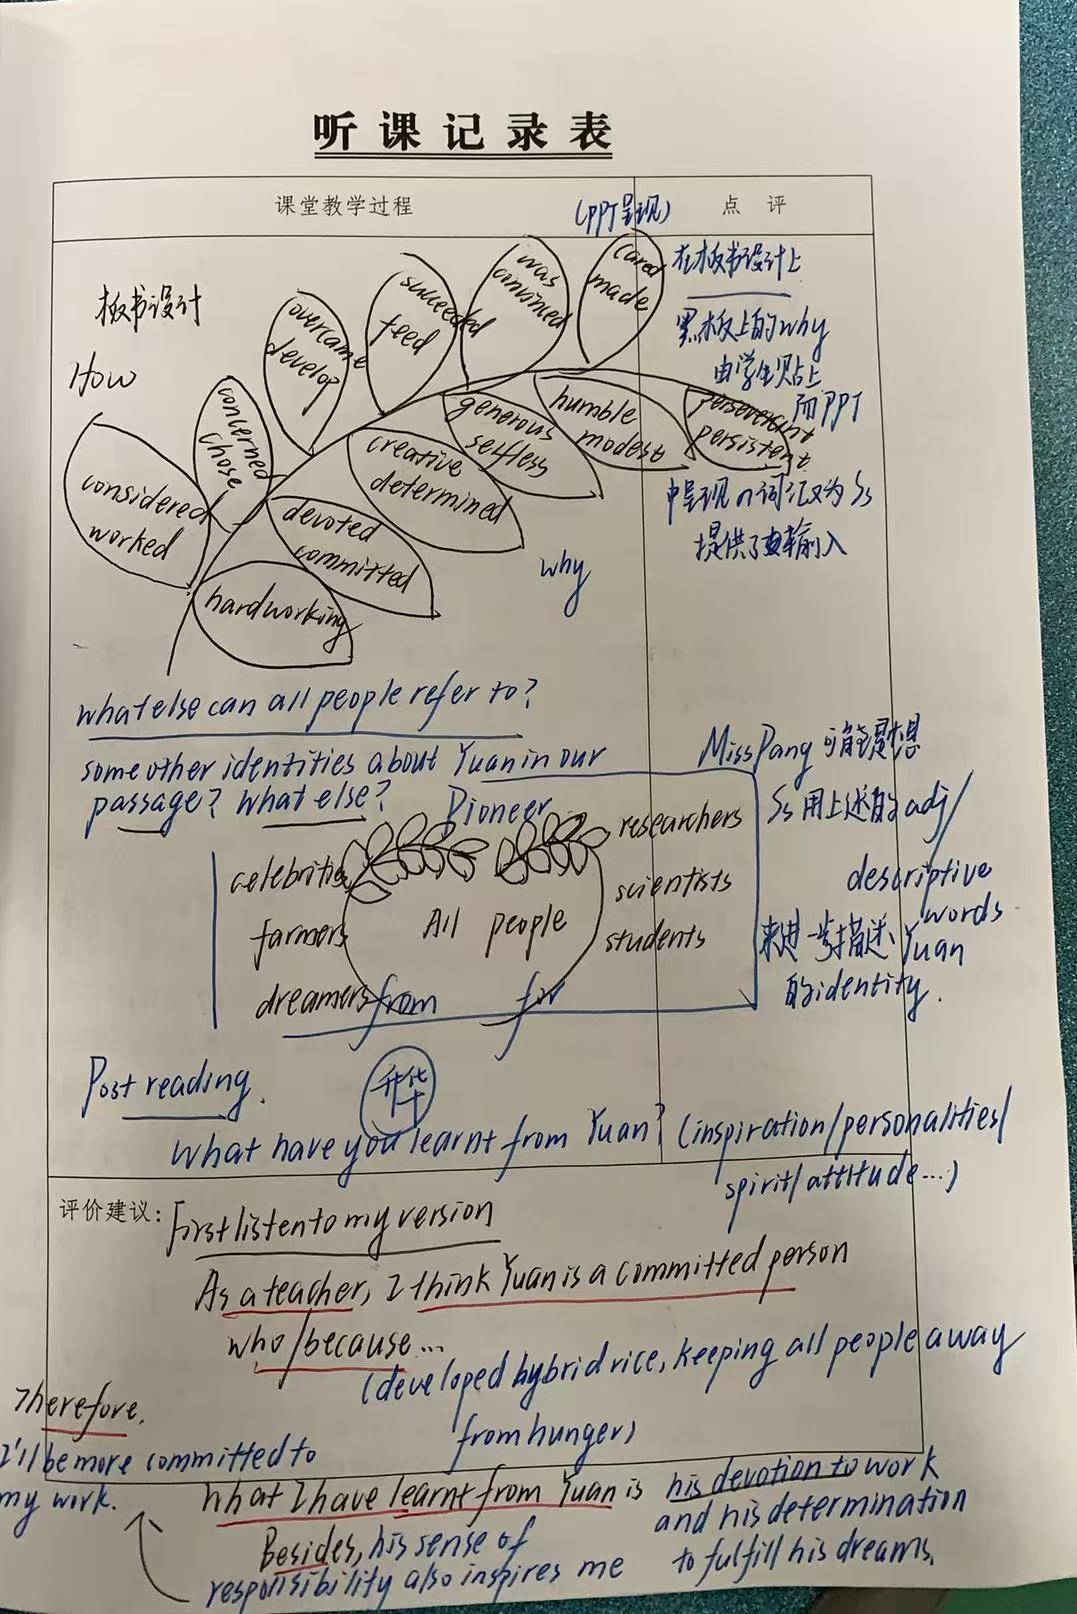 听课记录表
课堂教学过程
点 评
(PPT呈现)
板书设计
How
considered
worked
concerned
chose
overcame
develop
succeeded
feed
was
convinced
cared
made
hardworking
devoted
committed
creative
determined
generous
selfless
humble
modest
perseverant
persistent
why
在板书设计上
黑板上的why
由学生贴上
而PPT
中呈现的词汇又为Ss
提供了输入
what else can all people refer to?
some other identities about Yuan in our
passage? What else?
Pioneer
celebrities
farmers
dreamers
All people
from for
researchers
scientists
students
Miss Pang 可能是想
Ss 用上述的adj/
descriptive
words
来进一步描述Yuan
的identity.
Post reading.
升华
What have you learnt from Yuan? (inspiration/personalities/
spirit/attitude...)
评价建议:
First listen to my version
As a teacher, I think Yuan is a committed person
who/because...
(developed hybrid rice, keeping all people away
from hunger)
Therefore,
I'll be more committed to
my work.
What I have learnt from Yuan is his devotion to work
and his determination
to fulfill his dreams.
Besides, his sense of
responsibility also inspires me